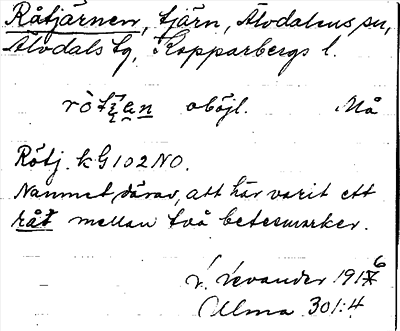 Råtjärnen, tjärn, Älvdalens sn,
Älvdals tg, Kopparbergs l.
oböjl. Må
Rötj. k G 102 NO.
Namnet därav, att här varit ett
råt mellan två betesmarker.
L. Levander 1916
Ulma 301:4